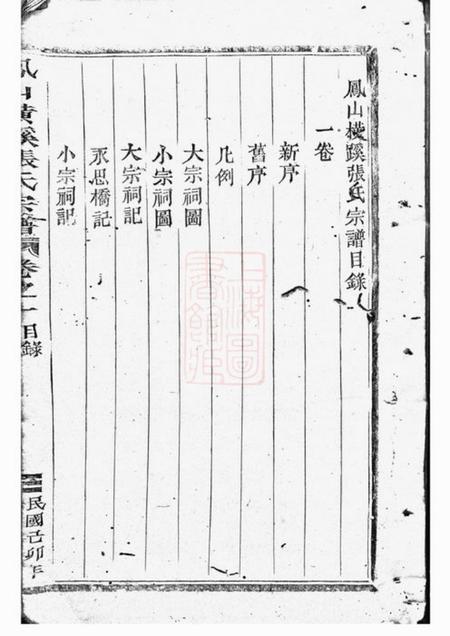 鳳山橫蹊張氏宗譜目錄
一卷
新序
舊序
凡例
大宗祠圖
小宗祠圖
大宗祠記
永思橋記
小宗祠記
鳳山橫溪張氏宗譜 卷之一 目錄
民國己卯年
上海圖書館藏